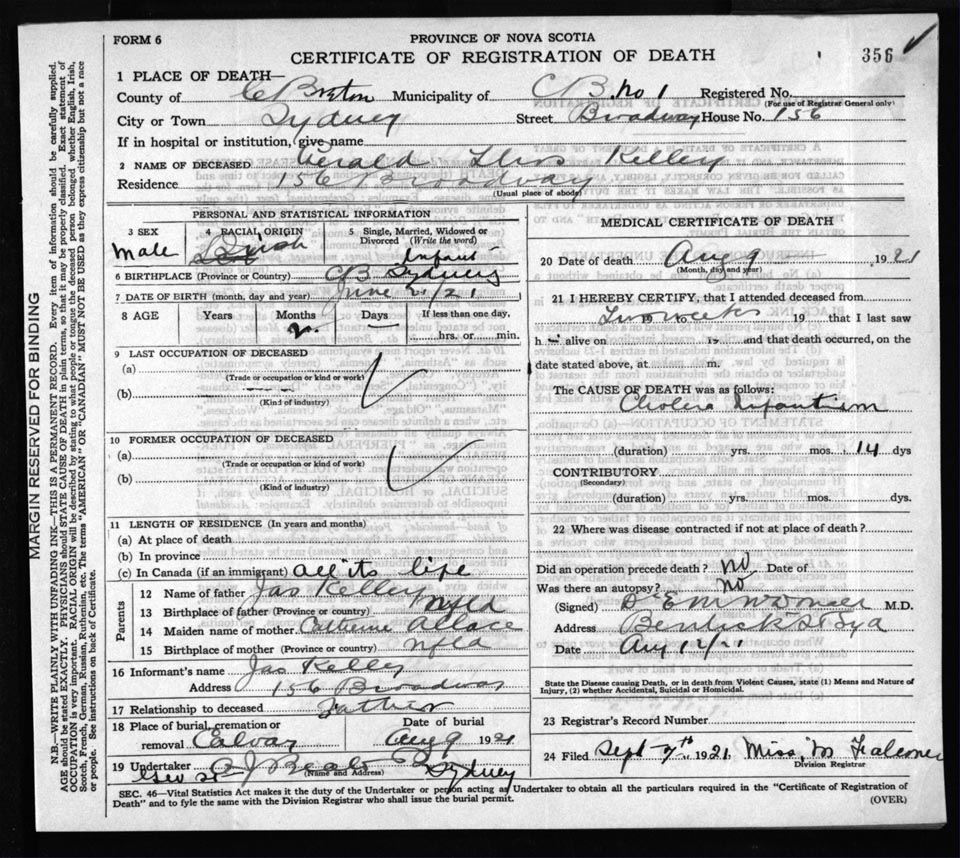 FORM 6
PROVINCE OF NOVA SCOTIA
CERTIFICATE OF REGISTRATION OF DEATH
356
1 PLACE OF DEATH—
County of C Breton Municipality of C B. No 1 Registered No.
(For use of Registrar General only)
City or Town Sydney Street Broadway House No. 156
If in hospital or institution, give name
2 NAME OF DECEASED Gerald Thos Kelley
Residence 156 Broadway
(Usual place of abode)
PERSONAL AND STATISTICAL INFORMATION
3 SEX Male
4 RACIAL ORIGIN Irish
5 Single, Married, Widowed or Divorced (Write the word) Infant
6 BIRTHPLACE (Province or Country) C B Sydney
7 DATE OF BIRTH (month, day and year) June 21/21
8 AGE Years Months Days If less than one day,
2 hrs. or min.
9 LAST OCCUPATION OF DECEASED
(a)
(Trade or occupation or kind or work)
(b)
(Kind of industry)
10 FORMER OCCUPATION OF DECEASED
(a)
(Trade or occupation or kind of work)
(b)
(Kind of industry)
11 LENGTH OF RESIDENCE (In years and months)
(a) At place of death
(b) In province
(c) In Canada (if an immigrant) all its life
Parents
12 Name of father Jas Kelley
13 Birthplace of father (Province or country) Nfld
14 Maiden name of mother Catherine
15 Birthplace of mother (Province or country) Nfld
16 Informant's name Jas Kelley
Address 156 Broadway
17 Relationship to deceased Father
18 Place of burial, cremation or removal Calvary
Date of burial Aug 9 1921
19 Undertaker J Beals
(Name and Address)
Geo St Sydney
MEDICAL CERTIFICATE OF DEATH
20 Date of death Aug 9 1921
(Month, day and year)
21 I HEREBY CERTIFY, that I attended deceased from
Two weeks 19 to 19 that I last saw
h alive on 19 and that death occurred, on the
date stated above, at m.
The CAUSE OF DEATH was as follows:
Cholera Infantum
(duration) yrs. mos. 14 dys
CONTRIBUTORY
(Secondary)
(duration) yrs. mos. dys.
22 Where was disease contracted if not at place of death?
Did an operation precede death? No Date of
Was there an autopsy? No
(Signed) M.D.
Address St Syd
Date Aug 12/21
State the Disease causing Death, or in death from Violent Causes, state (1) Means and Nature of Injury, (2) whether Accidental, Suicidal or Homicidal.
23 Registrar's Record Number
24 Filed Sept 7th 1921 Miss M Falconer
Division Registrar
SEC. 46—Vital Statistics Act makes it the duty of the Undertaker or person acting as Undertaker to obtain all the particulars required in the "Certificate of Registration of
Death" and to fyle the same with the Division Registrar who shall issue the burial permit.
(OVER)
MARGIN RESERVED FOR BINDING
N.B.—WRITE PLAINLY WITH UNFADING INK—THIS IS A PERMANENT RECORD. Every item of information should be carefully supplied.
AGE should be stated EXACTLY. PHYSICIANS should STATE CAUSE OF DEATH in plain terms, so that it may be properly classified. Exact statement of
OCCUPATION is very important. RACIAL ORIGIN will be described by stating to what people or tongue the deceased person belonged whether English, Irish,
Scotch, French, German, Russian, Ruthenian, etc. The terms "AMERICAN" OR "CANADIAN" MUST NOT BE USED as they express citizenship but not a race
or people. See instructions on back of Certificate.